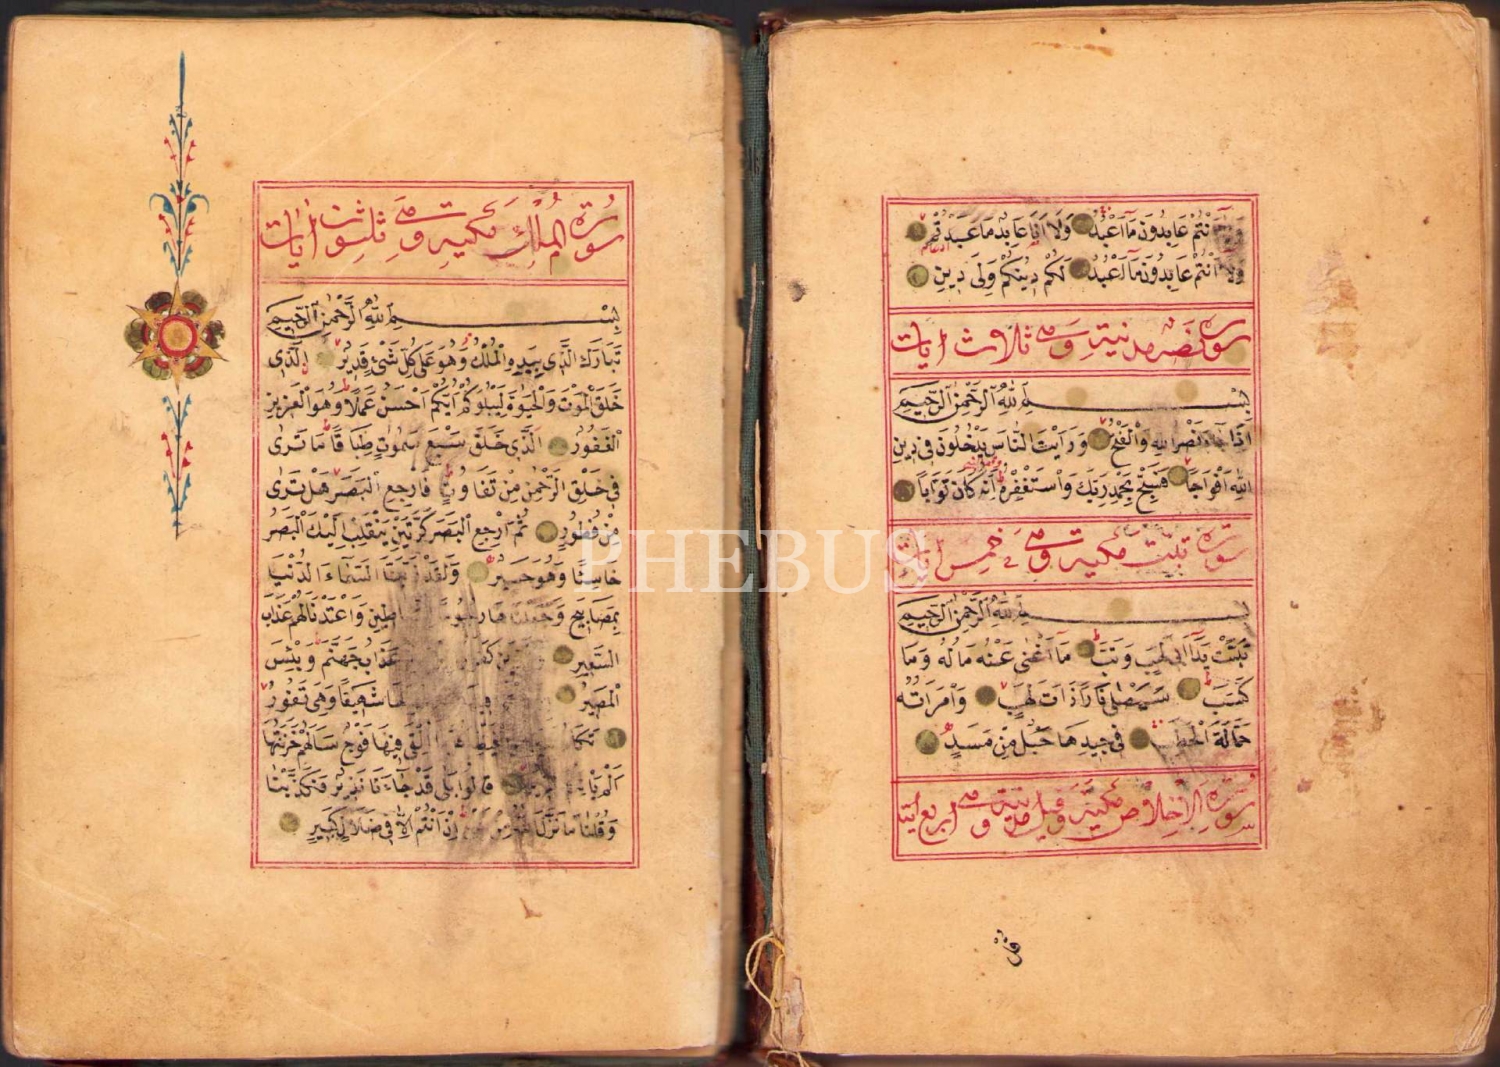 ولا انتم عابدون ما اعبد ولا انا عابد ما عبدتم
ولا انتم عابدون ما اعبد لكم دينكم ولى دين
سورة نصر مدنية وهي ثلاث ايات
بسم الله الرحمن الرحيم
اذا جاء نصر الله والفتح ورايت الناس يدخلون فى دين
الله افواجا فسبح بحمد ربك واستغفره انه كان توابا
سورة تبت مكية وهي خمس ايات
بسم الله الرحمن الرحيم
تبت يدا ابى لهب وتب ما اغنى عنه ماله وما
كسب سيصلى نارا ذات لهب وامراته
حمالة الحطب فى جيدها حبل من مسد
سورة الاخلاص مكية وقيل مدنية وهي اربع ايات
قل
سورة الملك مكية وهي ثلثون ايات
بسم الله الرحمن الرحيم
تبارك الذى بيده الملك وهو على كل شئ قدير الذى
خلق الموت والحيوة ليبلوكم ايكم احسن عملا وهو العزيز
الغفور الذى خلق سبع سموت طباقا ما ترى
فى خلق الرحمن من تفاوت فارجع البصر هل ترى
من فطور ثم ارجع البصر كرتين ينقلب اليك البصر
خاسئا وهو حسير ولقد زينا السماء الدنيا
بمصابيح وجعلناها رجوما واعتدنا لهم عذاب
السعير عذاب جهنم وبئس
المصير شهيقا وهى تفور
تكاد القى فيها فوج سالهم خزنتها
الم قالوا بلى قد جاءنا نذير فكذبنا
وقلنا ما نزل ان انتم الا فى ضلال كبير
PHEBUS